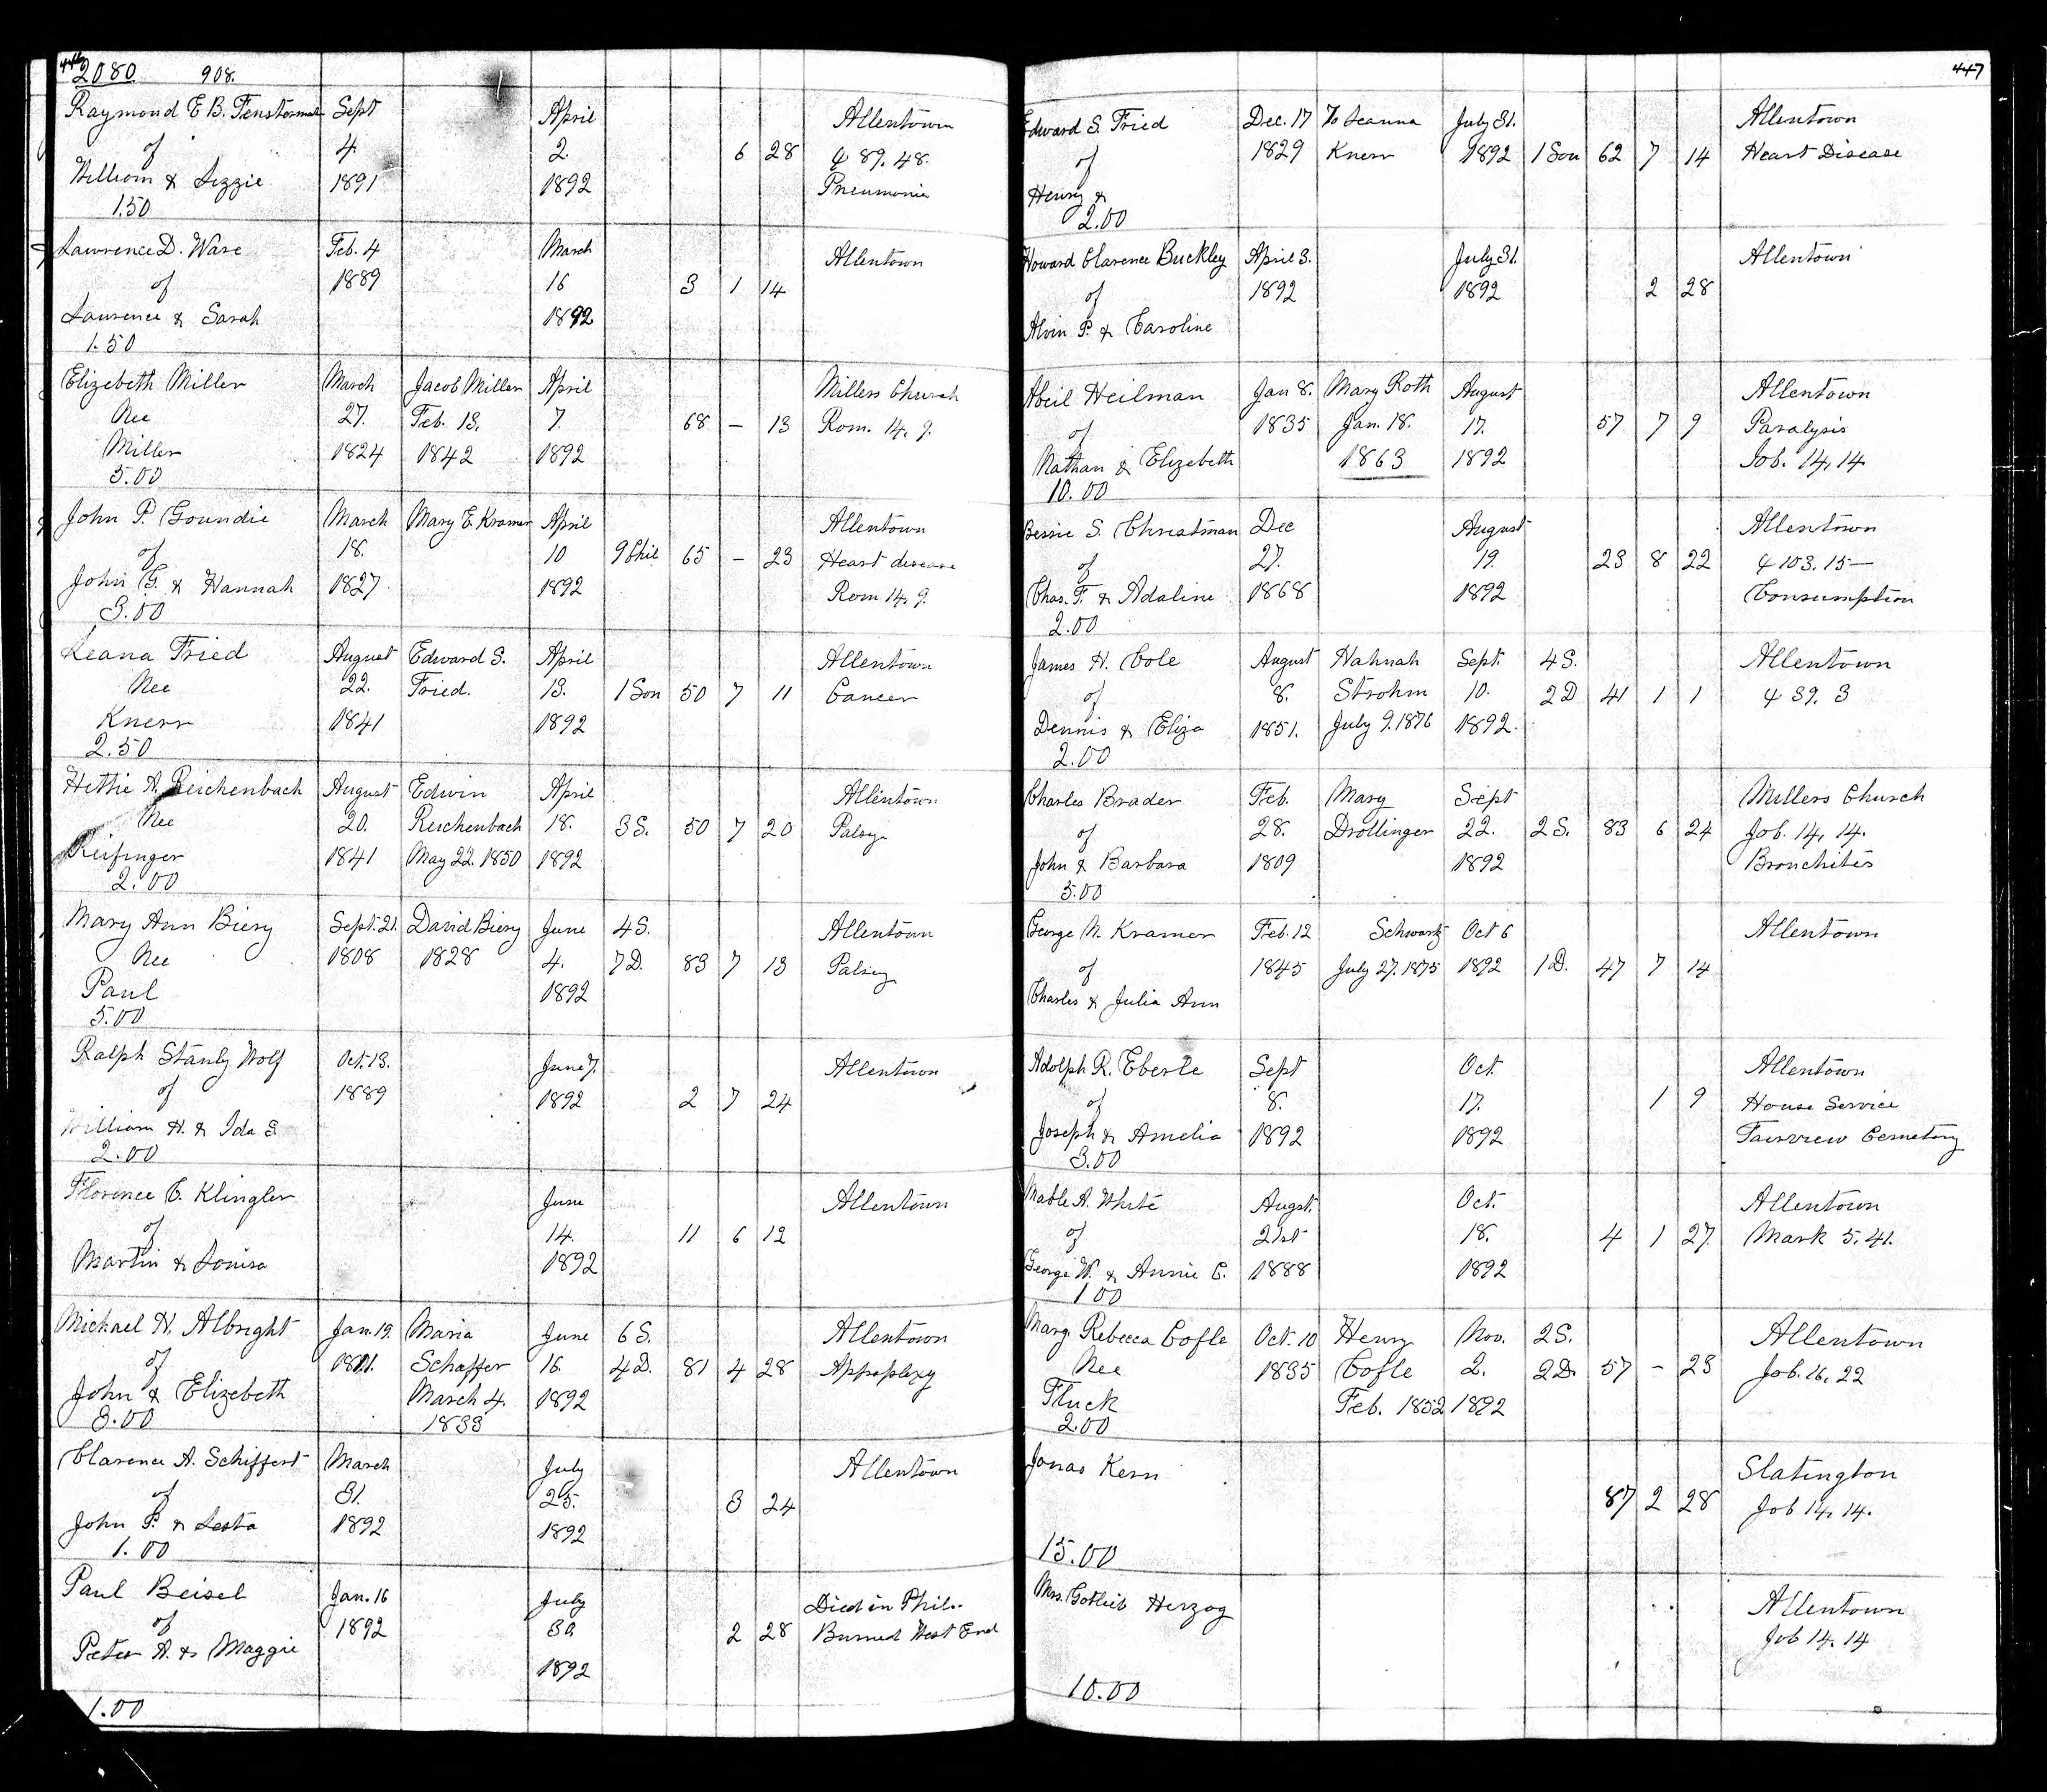 446
2080 908.
Raymond E. B. Fenstermaker Sept April Allentown
of 4. 2. 6 28 ψ 89. 48.
William & Lizzie 1891 1892 Pneumonia
1.50
Lawrence D. Ware Feb. 4 March Allentown
of 1889 16 3 1 14
Lawrence & Sarah 1892
1.50
Elizebeth Miller March Jacob Miller April Millers Church
Nee 27. Feb. 13, 7. 68 — 13 Rom. 14, 9.
Miller 1824 1842 1892
5.00
John P. Goundie March Mary E. Kramer April Allentown
of 18. 10 9 Chil 65 — 23 Heart disease
John G. & Hannah 1827 1892 Rom 14, 9.
3.00
Leana Fried August Edward S. April Allentown
Nee 22. Fried. 13. 1 Son 50 7 11 Cancer
Knerr 1841 1892
2.50
Hettie A. Reichenbach August Edwin April Allentown
Nee 20. Reichenbach 18. 3 S. 50 7 20 Palsy
Reifinger 1841 May 22. 1850 1892
2.00
Mary Ann Biery Sept. 21. David Biery June 4 S. Allentown
Nee 1808 1828 4. 7 D. 83 7 13 Palsey
Paul 1892
5.00
Ralph Stanly Wolf Oct. 13. June 7. Allentown
of 1889 1892 2 7 24
William H. & Ida S.
2.00
Florence C. Klingler June Allentown
of 14. 11 6 12
Martin & Louisa 1892
Michael H. Albright Jan. 19. Maria June 6 S. Allentown
of 1811. Schaffer 16. 4 D. 81 4 28 Appoplexy
John & Elizebeth March 4. 1892
3.00 1833
Clarence A. Schiffert March July Allentown
of 31. 25. 3 24
John P. & Lesta 1892 1892
1.00
Paul Beisel Jan. 16 July Died in Phil.
of 1892 30 2 28 Burried West End
Peter A. & Maggie 1892
1.00
447
Edward S. Fried Dec. 17 To Leanna July 31. Allentown
of 1829 Knerr 1892 1 Son 62 7 14 Heart Disease
Henry &
2.00
Howard Clarence Buckley April 3. July 31. Allentown
of 1892 1892 2 28
Alvin P. & Caroline
Abeil Heilman Jan 8. Mary Roth August Allentown
of 1835 Jan. 18. 17. 57 7 9 Paralysis
Nathan & Elizebeth 1863 1892 Job. 14, 14
10.00
Bessie S. Christman Dec August Allentown
of 27. 19. 23 8 22 ψ 103. 15—
Chas. F. & Adaline 1868 1892 Consumption
2.00
James H. Cole August Hahnah Sept. 4 S. Allentown
of 8. Strohm 10. 2 D 41 1 1 ψ 39. 3
Dennis & Eliza 1851. July 9. 1876 1892.
2.00
Charles Brader Feb. Mary Sept Millers Church
of 28. Drollinger 22. 2 S. 83 6 24 Job. 14, 14.
John & Barbara 1809 1892 Bronchites
5.00
George N. Kramer Feb. 12 Schwartz Oct 6 Allentown
of 1845 July 27. 1875 1892 1 D. 47 7 14
Charles & Julia Ann
Adolph R. Eberle Sept Oct. Allentown
of 8. 17. 1 9 House Service
Joseph & Amelia 1892 1892 Fairview Cemetery
3.00
Mable A. White Augst. Oct. Allentown
of 21st 18. 4 1 27 Mark 5. 41.
George W. & Annie C. 1888 1892
1 00
Mary Rebecca Cofle Oct. 10 Henry Nov. 2 S. Allentown
Nee 1835 Cofle 2. 2 D. 57 — 23 Job. 16, 22
Fluck Feb. 1852 1892
2.00
Jonas Kern Slatington
87 2 28 Job 14, 14.
15.00
Mrs. Gotlieb Herzog Allentown
Job 14. 14
10.00